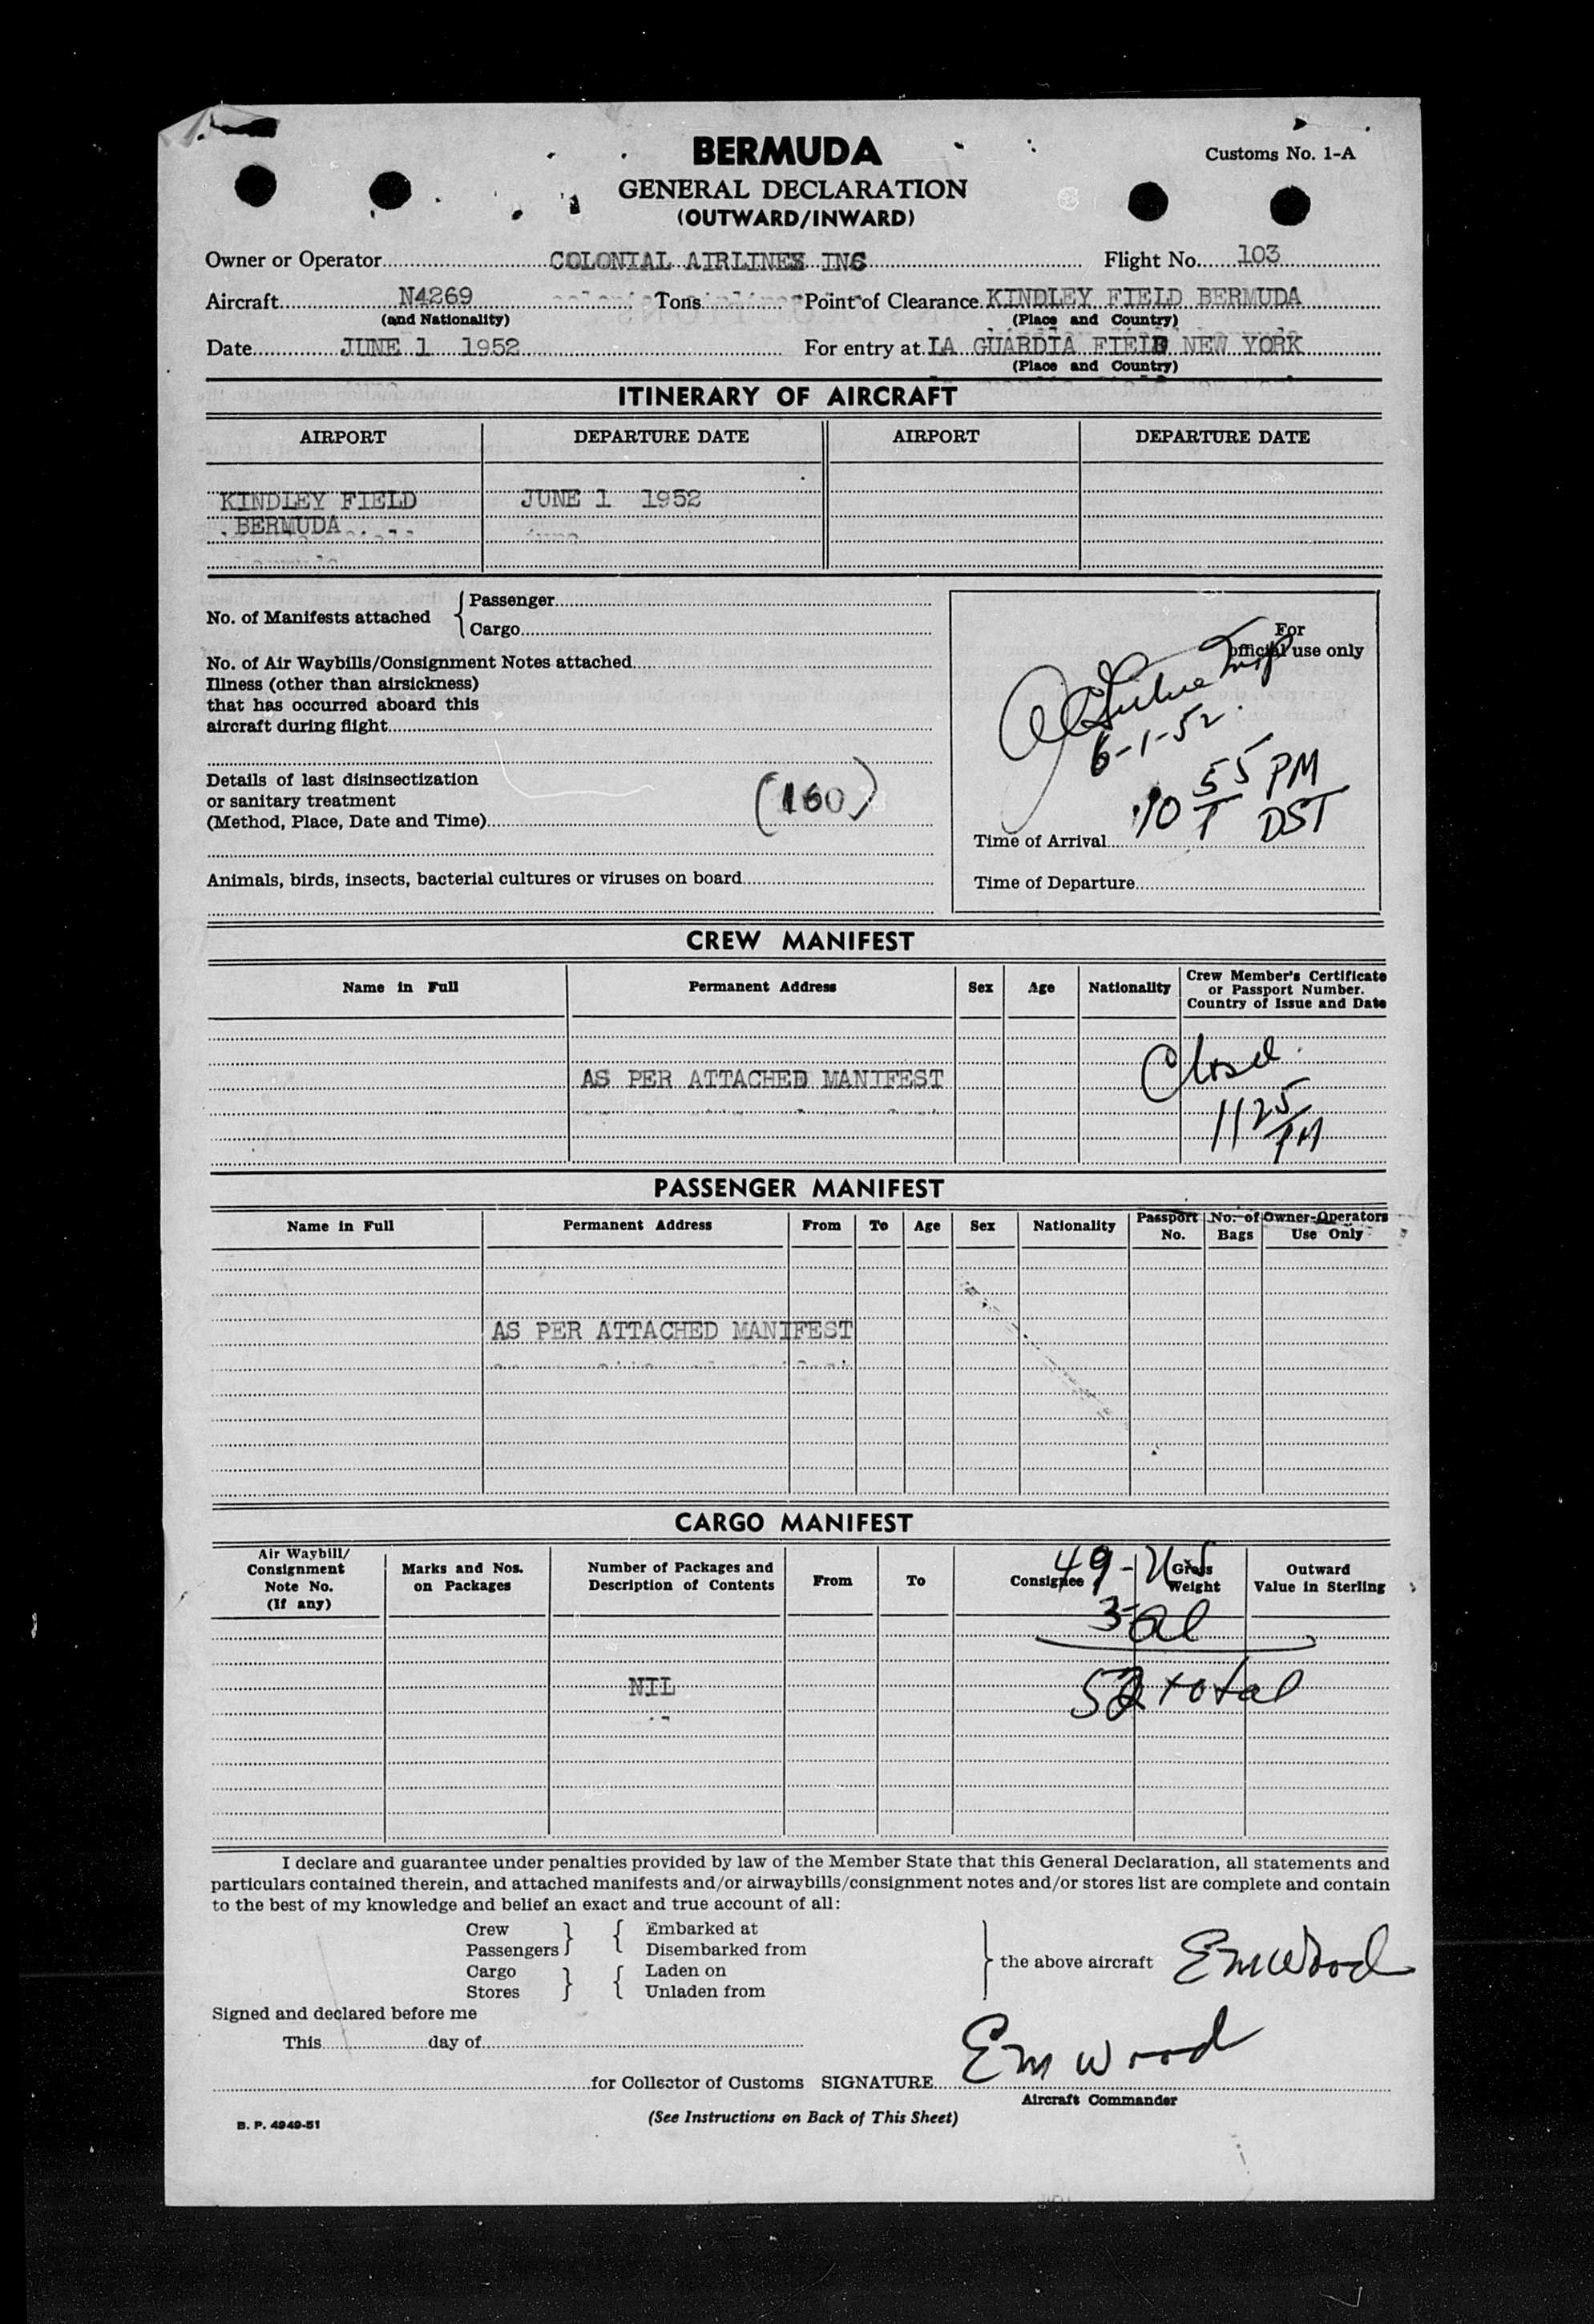 BERMUDA
Customs No. 1-A
GENERAL DECLARATION
(OUTWARD/INWARD)
Owner or Operator COLONIAL AIRLINES INC Flight No. 103
Aircraft N4269 Tons Point of Clearance KINDLEY FIELD BERMUDA
(and Nationality) (Place and Country)
Date JUNE 1 1952 For entry at LA GUARDIA FIELD NEW YORK
(Place and Country)
ITINERARY OF AIRCRAFT
AIRPORT DEPARTURE DATE AIRPORT DEPARTURE DATE
KINDLEY FIELD JUNE 1 1952
BERMUDA
No. of Manifests attached { Passenger
Cargo
No. of Air Waybills/Consignment Notes attached
Illness (other than airsickness)
that has occurred aboard this
aircraft during flight
Details of last disinsectization
or sanitary treatment
(Method, Place, Date and Time)
(160)
Animals, birds, insects, bacterial cultures or viruses on board
For
official use only
Insp
6-1-52.
10 55 PM
DST
Time of Arrival
Time of Departure
CREW MANIFEST
Name in Full Permanent Address Sex Age Nationality Crew Member's Certificate
or Passport Number.
Country of Issue and Date
AS PER ATTACHED MANIFEST
Closed
11 25
PM
PASSENGER MANIFEST
Name in Full Permanent Address From To Age Sex Nationality Passport No. No. of Bags Owner-Operators Use Only
AS PER ATTACHED MANIFEST
CARGO MANIFEST
Air Waybill/
Consignment
Note No.
(If any)
Marks and Nos.
on Packages
Number of Packages and
Description of Contents
From To Consignee Gross
Weight
Outward
Value in Sterling
49-US
3-al
52 total
NIL
I declare and guarantee under penalties provided by law of the Member State that this General Declaration, all statements and
particulars contained therein, and attached manifests and/or airwaybills/consignment notes and/or stores list are complete and contain
to the best of my knowledge and belief an exact and true account of all:
Crew } { Embarked at
Passengers Disembarked from
Cargo } { Laden on
Stores Unladen from
} the above aircraft EmWood
Signed and declared before me
This day of
for Collector of Customs SIGNATURE Em Wood
Aircraft Commander
B. P. 4949-51
(See Instructions on Back of This Sheet)